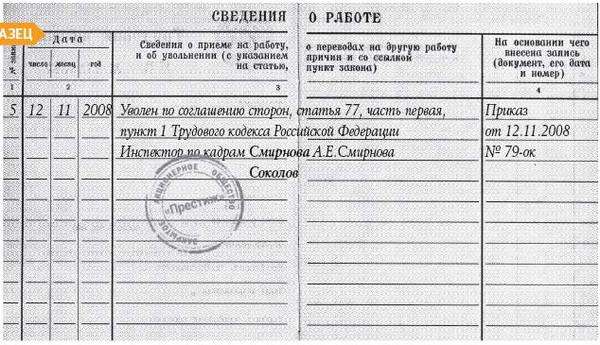 АЗЕЦ
СВЕДЕНИЯ О РАБОТЕ
Дата
число месяц год
Сведения о приеме на работу,
и об увольнении (с указанием
на статью,
о переводах на другую работу
причин и со ссылкой
пункт закона)
На основании чего
внесена запись
(документ, его дата
и номер)
1 2 3 4
5 12 11 2008 Уволен по соглашению сторон, статья 77, часть первая, Приказ
пункт 1 Трудового кодекса Российской Федерации от 12.11.2008
Инспектор по кадрам Смирнова А.Е.Смирнова № 79-ок
Соколов
ЗАКРЫТОЕ АКЦИОНЕРНОЕ ОБЩЕСТВО
«Престиж»